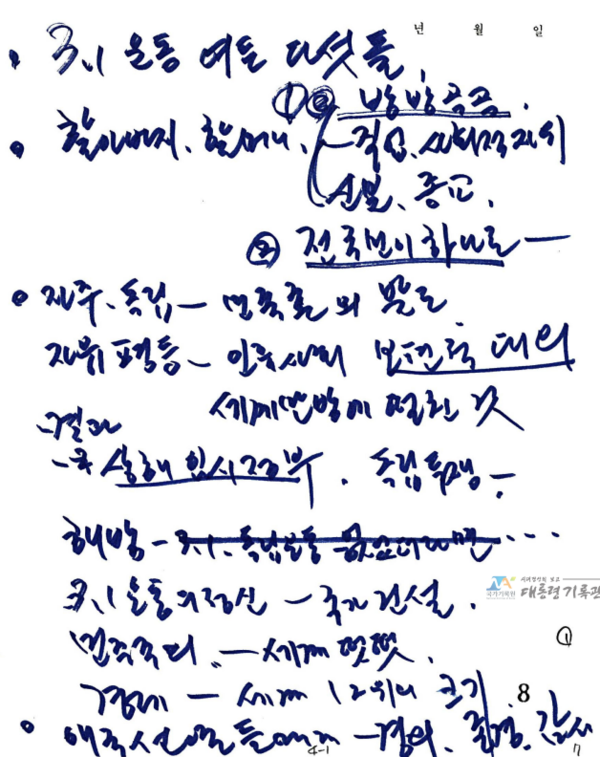 년 월 일
3.1 운동 여든 다섯돌
① ② 방방곡곡.
할아버지、할머니、 – 직업、사회적지위
신분、종교、
② 전국민이 하나로 –
자주、독립 – 민족혼의 발로
자유 평등 – 인류사회 보편적 대의
세계만방에 떨친 것
-결과
상해 임시정부 . 독립투쟁 –
해방 – 3.1、독립운동 없었더라면 ...
3.1 운동의 정신 – 국가 건설 .
국가기록원 대통령기록관
①
민주주의 – 세계 .
경제 – 세계 12위의 크기
8
애국선열들에게 – 경의、존경、감사
4-1
7